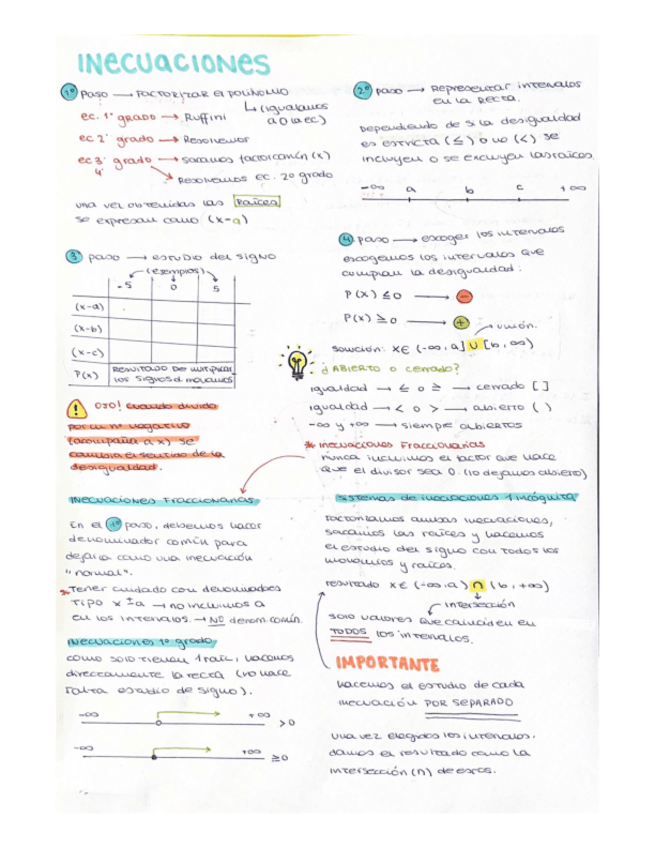 INECUACIONES
1º Paso → FACTORIZAR El POLINOMIO
↳ (igualamos
a 0 la ec.)
ec. 1º grado → Ruffini
ec 2º grado → Resolvemos
ec 3º grado → sacamos factor común (x)
4º
Resolvemos ec. 2º grado
una vez obtenidas las Raíces
se expresan como (x-a)
2º paso → Representar intervalos
en la RECTA.
Dependiendo de si la desigualdad
es estricta (≤) o no (<) se
incluyen o se excluyen las raíces.
-∞ a b c +∞
3 paso → estudio del signo
(ejemplos)
-5 0 5
(x-a)
(x-b)
(x-c)
P(x) Resultado de multiplicar
los signos d monomios
4 paso → escoger los intervalos
escogemos los intervalos que
cumplan la desigualdad:
P(x) ≤ 0 → -
P(x) ≥ 0 → +
unión.
solución: x∈ (-∞, a] U [b, ∞)
¿ABIERTO o cerrado?
igualdad → ≤ o ≥ → cerrado [ ]
igualdad → < o > → abierto ( )
-∞ y +∞ → siempre abiertos
! OJO! cuando divido
por un nº negativo
(acompaña a x) se
cambia el sentido de la
desigualdad.
* inecuaciones Fraccionarias
nunca incluimos el factor que hace
que el divisor sea 0. (lo dejamos abierto)
INECUACIONES FRACCIONARIAS
En el 1º paso, debemos hacer
denominador común para
dejarla como una inecuación
"normal".
* Tener cuidado con denominadores
TIPO x ± a → no incluimos a
en los intervalos. → NO denom. común.
INECUACIONES 1º grado
como solo tienen 1 raíz, hacemos
directamente la recta (no hace
falta estudio de signo).
-∞ +∞ >0
-∞ +∞ ≥0
SISTEMAS de inecuaciones 1 incógnita
factorizamos ambas inecuaciones,
sacamos las raíces y hacemos
el estudio del signo con todos los
monomios y raíces.
resultado x∈ (-∞, a) ∩ (b, +∞)
intersección
solo valores que coinciden en
TODOS los intervalos.
IMPORTANTE
hacemos el estudio de cada
inecuación POR SEPARADO
una vez elegidos los intervalos.
damos el resultado como la
intersección (∩) de esos.